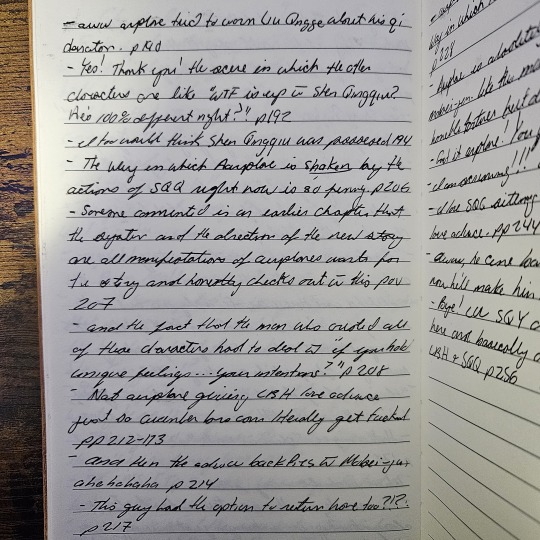 - aww airplane tried to warn Liu Qingge about his qi
p190
- Yes! Thank you! the scene in which the other
characters are like "WTF is up w Shen Qingqiu?
He's 100% different right?" p192
would think Shen Qingqiu was possessed 194
- The way in which Airplane is shaken by the
actions of SQQ right now is so funny p206
- Someone commented in an earlier chapter that
the system and the direction of the new story
are all manifestations of airplanes wants for
the story and honestly checks out w this pov
207
- and the fact that the man who created all
of these characters had to deal w "if you hold
unique feelings... your intentions?" p208
- Not airplane giving LBH love advice
just so bro can literally get fucked
pp 212-
- and then the advice backfires w Mobei-jun
ahahahaha p214
- This guy had the option to return home too?!?
p217
- 
way in which
p228
- Airplane is absolutely
makes you like the
horrible torture but
- Got it airplane! You
- I'm screaming!!!
- I like SQQ sitting
love advice. pp 244
- 
now he'll make him
- Bye! LQG
here and basically
LBH & SQQ p256